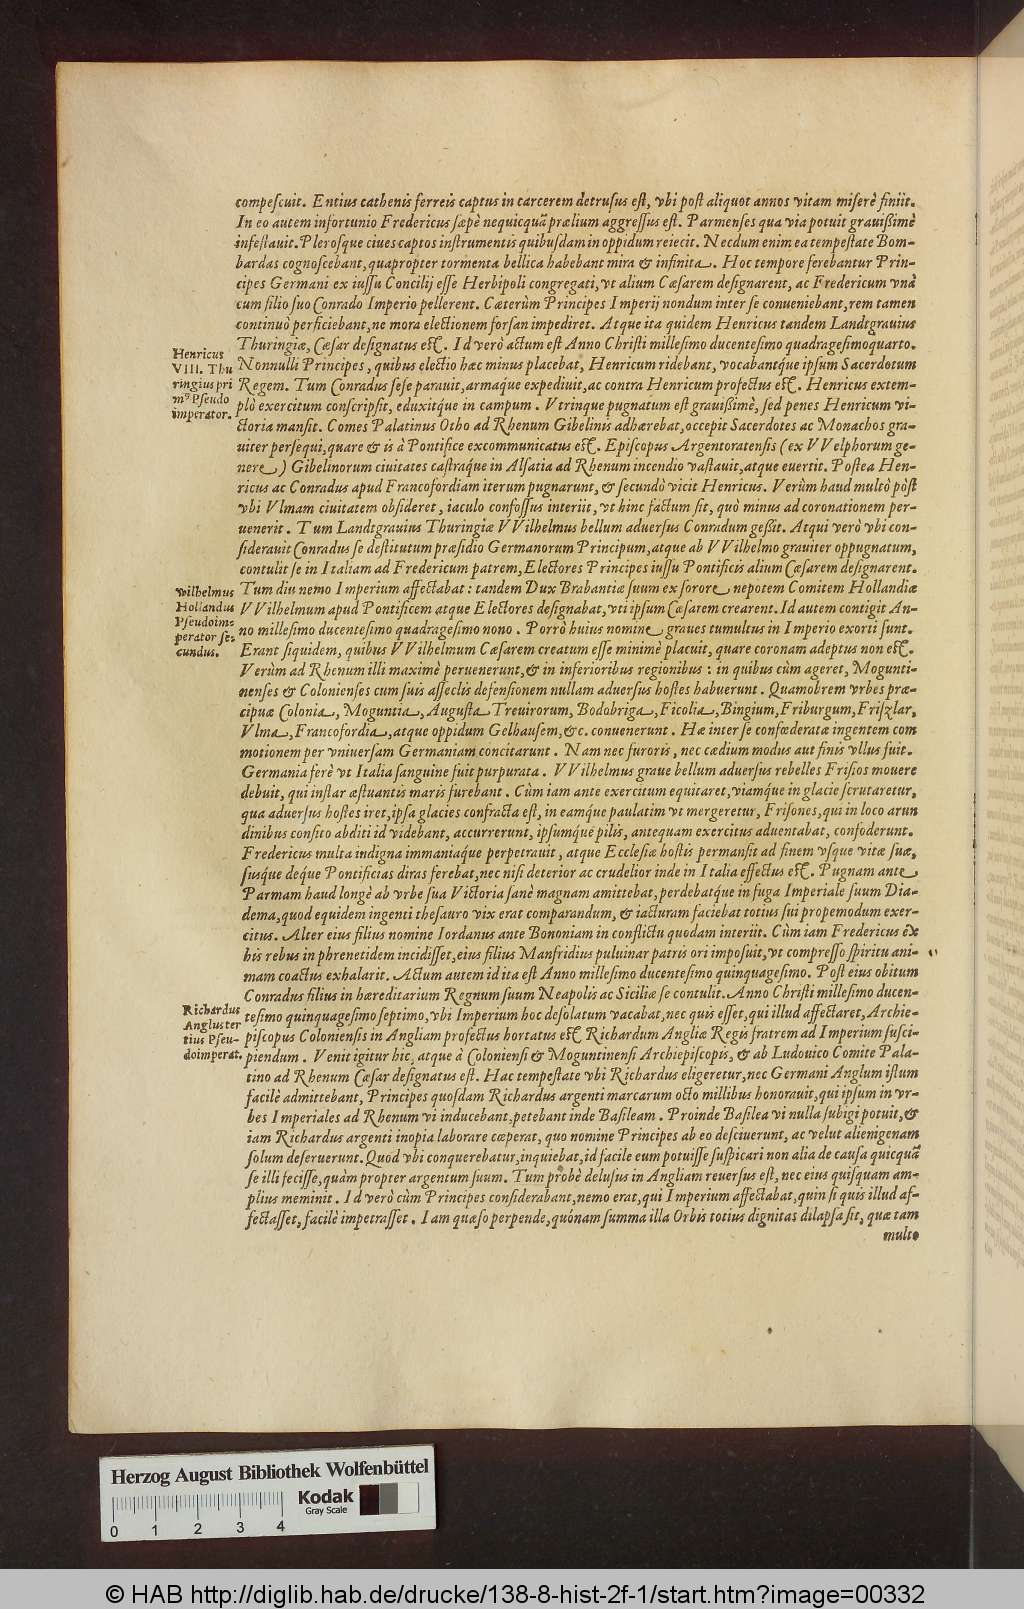 compeſcuit. Entius cathenis ferreis captus in carcerem detruſus eſt, vbi poſt aliquot annos vitam miſerè finiit.
In eo autem infortunio Fredericus ſæpè nequicquã prælium aggreſſus eſt. Parmenſes qua via potuit grauiſsimè
infeſtauit. Pleroſque ciues captos inſtrumentis quibuſdam in oppidum reiecit. Necdum enim ea tempeſtate Bom-
bardas cognoſcebant, quapropter tormenta bellica habebant mira & infinita. Hoc tempore ferebantur Prin-
cipes Germani ex iuſſu Concilij eſſe Herbipoli congregati, vt alium Cæſarem deſignarent, ac Fredericum vnà
cum filio ſuo Conrado Imperio pellerent. Cæterùm Principes Imperij nondum inter ſe conueniebant, rem tamen
continuò perficiebant, ne mora electionem forſan impediret. Atque ita quidem Henricus tandem Landtgrauius
Thuringiæ, Cæſar deſignatus eſt. Id verò actum eſt Anno Chriſti milleſimo ducenteſimo quadrageſimoquarto.
Henricus
VIII. Thu
ringius pri
mꝰ Pſeudo
imperator.
Nonnulli Principes, quibus electio hæc minus placebat, Henricum ridebant, vocabantque ipſum Sacerdotum
Regem. Tum Conradus ſeſe parauit, armaque expediuit, ac contra Henricum profectus eſt. Henricus extem-
plò exercitum conſcripſit, eduxitque in campum. Vtrinque pugnatum eſt grauiſsimè, ſed penes Henricum vi-
ctoria manſit. Comes Palatinus Otho ad Rhenum Gibelinis adhærebat, occepit Sacerdotes ac Monachos gra-
uiter perſequi, quare & is à Pontifice excommunicatus eſt. Epiſcopus Argentoratenſis (ex VVelphorum ge-
nere) Gibelinorum ciuitates caſtraque in Alſatia ad Rhenum incendio vaſtauit, atque euertit. Poſtea Hen-
ricus ac Conradus apud Francofordiam iterum pugnarunt, & ſecundò vicit Henricus. Verùm haud multò pòſt
vbi Vlmam ciuitatem obſideret, iaculo confoſſus interiit, vt hinc factum ſit, quò minus ad coronationem per-
uenerit. Tum Landtgrauius Thuringiæ VVilhelmus bellum aduerſus Conradum geſsit. Atqui verò vbi con-
ſiderauit Conradus ſe deſtitutum præſidio Germanorum Principum, atque ab VVilhelmo grauiter oppugnatum,
contulit ſe in Italiam ad Fredericum patrem, Electores Principes iuſſu Pontificis alium Cæſarem deſignarent.
Wilhelmus
Hollandus
Pſeudoim-
perator ſe-
cundus.
Tum diu nemo Imperium affectabat: tandem Dux Brabantiæ ſuum ex ſorore nepotem Comitem Hollandiæ
VVilhelmum apud Pontificem atque Electores deſignabat, vti ipſum Cæſarem crearent. Id autem contigit An-
no milleſimo ducenteſimo quadrageſimo nono. Porrò huius nomine graues tumultus in Imperio exorti ſunt.
Erant ſiquidem, quibus VVilhelmum Cæſarem creatum eſſe minimè placuit, quare coronam adeptus non eſt.
Verùm ad Rhenum illi maximè peruenerunt, & in inferioribus regionibus: in quibus cùm ageret, Mogunti-
nenſes & Colonienſes cum ſuis aſſeclis defenſionem nullam aduerſus hoſtes habuerunt. Quamobrem vrbes præ-
cipuæ Colonia, Moguntia, Auguſta Treuirorum, Bodobriga, Ficolia, Bingium, Friburgum, Friſzlar,
Vlma, Francofordia, atque oppidum Gelhauſem, &c. conuenerunt. Hæ inter ſe confœderatæ ingentem com
motionem per vniuerſam Germaniam concitarunt. Nam nec furoris, nec cædium modus aut finis vllus fuit.
Germania ferè vt Italia ſanguine fuit purpurata. VVilhelmus graue bellum aduerſus rebelles Friſios mouere
debuit, qui inſtar æſtuantis maris furebant. Cùm iam ante exercitum equitaret, viamque in glacie ſcrutaretur,
qua aduerſus hoſtes iret, ipſa glacies confracta eſt, in eamque paulatim vt mergeretur, Friſones, qui in loco arun
dinibus conſito abditi id videbant, accurrerunt, ipſumque pilis, antequam exercitus aduentabat, confoderunt.
Fredericus multa indigna immaniaque perpetrauit, atque Eccleſiæ hoſtis permanſit ad finem vſque vitæ ſuæ,
ſusque deque Pontificias diras ferebat, nec niſi deterior ac crudelior inde in Italia effectus eſt. Pugnam ante
Parmam haud longè ab vrbe ſua Victoria ſanè magnam amittebat, perdebatque in fuga Imperiale ſuum Dia-
dema, quod equidem ingenti theſauro vix erat comparandum, & iacturam faciebat totius ſui propemodum exer-
citus. Alter eius filius nomine Iordanus ante Bononiam in conflictu quodam interiit. Cùm iam Fredericus ex
his rebus in phrenetidem incidiſſet, eius filius Manfridius puluinar patris ori impoſuit, vt compreſſo ſpiritu ani-
mam coactus exhalarit. Actum autem id ita eſt Anno milleſimo ducenteſimo quinquageſimo. Poſt eius obitum
Conradus filius in hæreditarium Regnum ſuum Neapolis ac Siciliæ ſe contulit. Anno Chriſti milleſimo ducen-
Richardus
Anglus ter
tius Pſeu-
doimperat.
teſimo quinquageſimo ſeptimo, vbi Imperium hoc deſolatum vacabat, nec quis eſſet, qui illud affectaret, Archie-
piſcopus Colonienſis in Angliam profectus hortatus eſt Richardum Angliæ Regis fratrem ad Imperium ſuſci-
piendum. Venit igitur hic, atque à Colonienſi & Moguntinenſi Archiepiſcopis, & ab Ludouico Comite Pala-
tino ad Rhenum Cæſar deſignatus eſt. Hac tempeſtate vbi Richardus eligeretur, nec Germani Anglum iſtum
facilè admittebant, Principes quoſdam Richardus argenti marcarum octo millibus honorauit, qui ipſum in vr-
bes Imperiales ad Rhenum vi inducebant, petebant inde Baſileam. Proinde Baſilea vi nulla ſubigi potuit, &
iam Richardus argenti inopia laborare cœperat, quo nomine Principes ab eo deſciuerunt, ac velut alienigenam
ſolum deſeruerunt. Quod vbi conquerebatur, inquiebat, id facile eum potuiſſe ſuſpicari non alia de cauſa quicquã
ſe illi feciſſe, quàm propter argentum ſuum. Tum probè deluſus in Angliam reuerſus eſt, nec eius quiſquam am-
plius meminit. Id verò cùm Principes conſiderabant, nemo erat, qui Imperium affectabat, quin ſi quis illud af-
fectaſſet, facilè impetraſſet. Iam quæſo perpende, quónam ſumma illa Orbis totius dignitas dilapſa ſit, quæ tam
multo
Herzog August Bibliothek Wolfenbüttel
Kodak
Gray Scale
0 1 2 3 4
© HAB http://diglib.hab.de/drucke/138-8-hist-2f-1/start.htm?image=00332